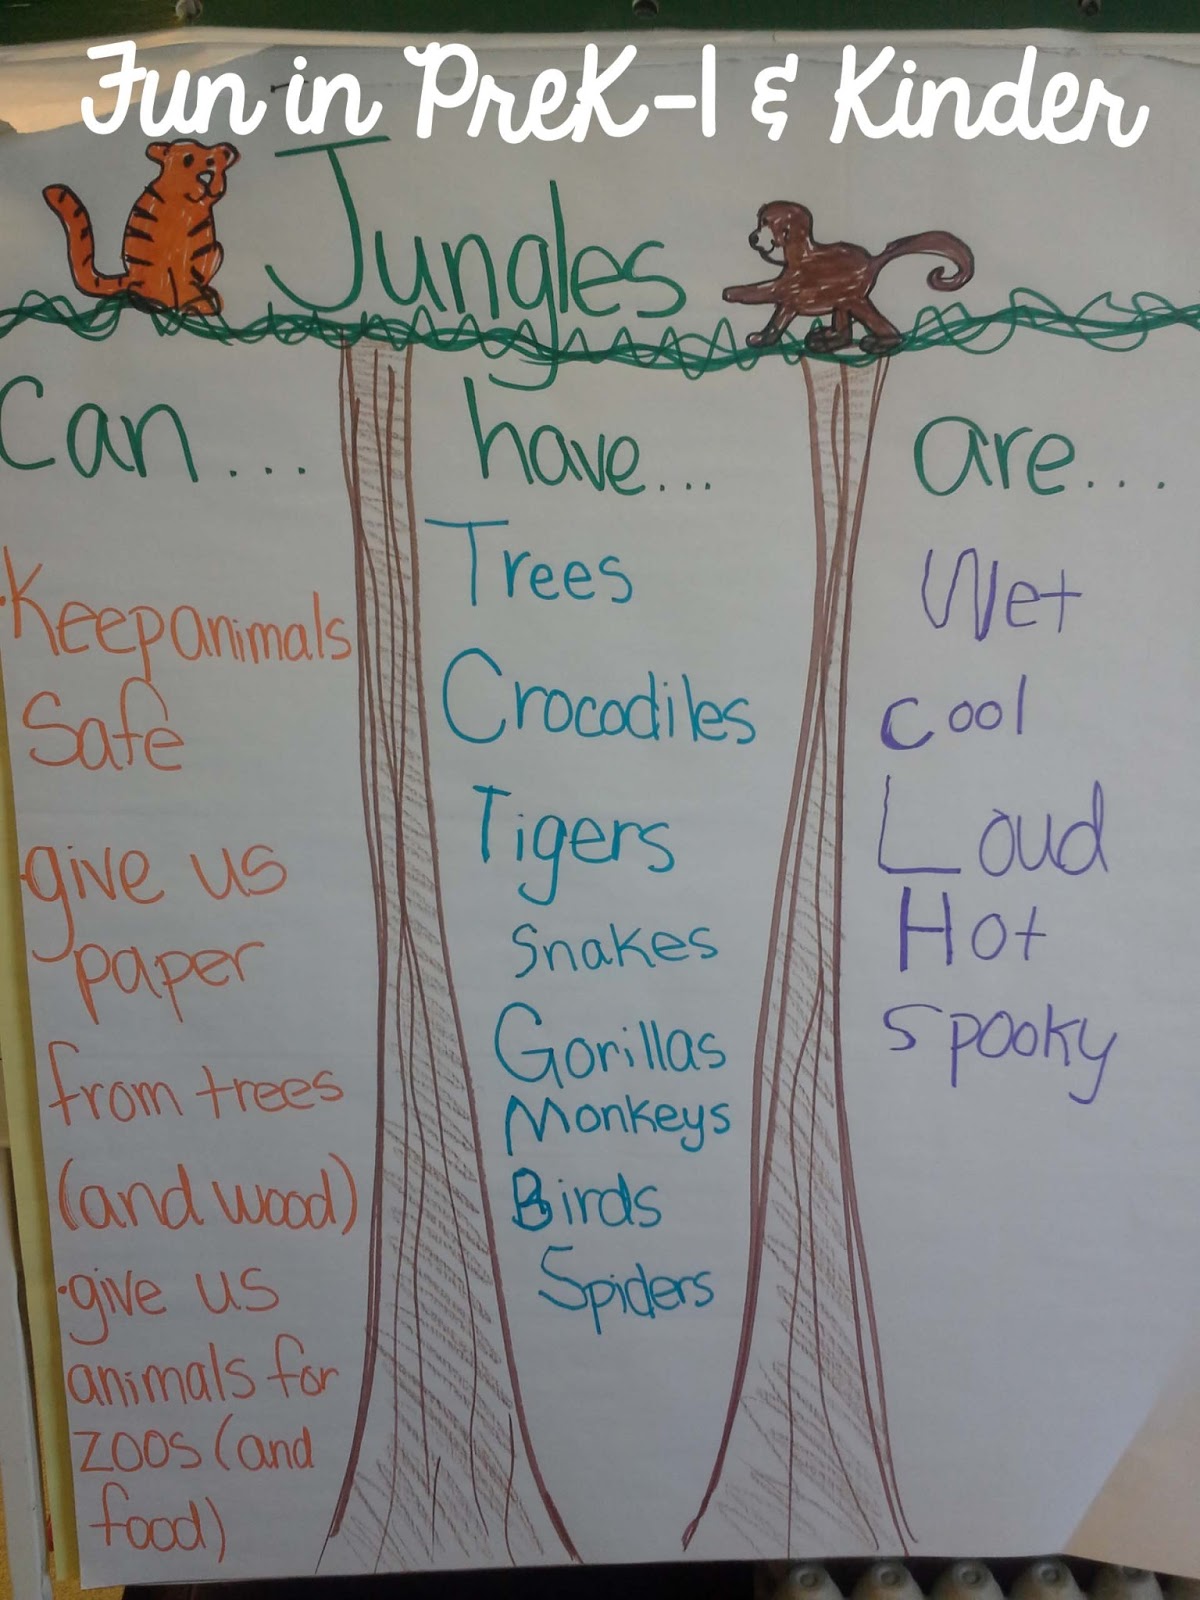 Fun in PreK-1 & Kinder
Jungles
Can...
Keep animals
Safe
give us
paper
from trees
(and wood)
give us
animals for
zoos (and
food)
have...
Trees
Crocodiles
Tigers
Snakes
Gorillas
Monkeys
Birds
Spiders
are...
Wet
cool
Loud
Hot
Spooky